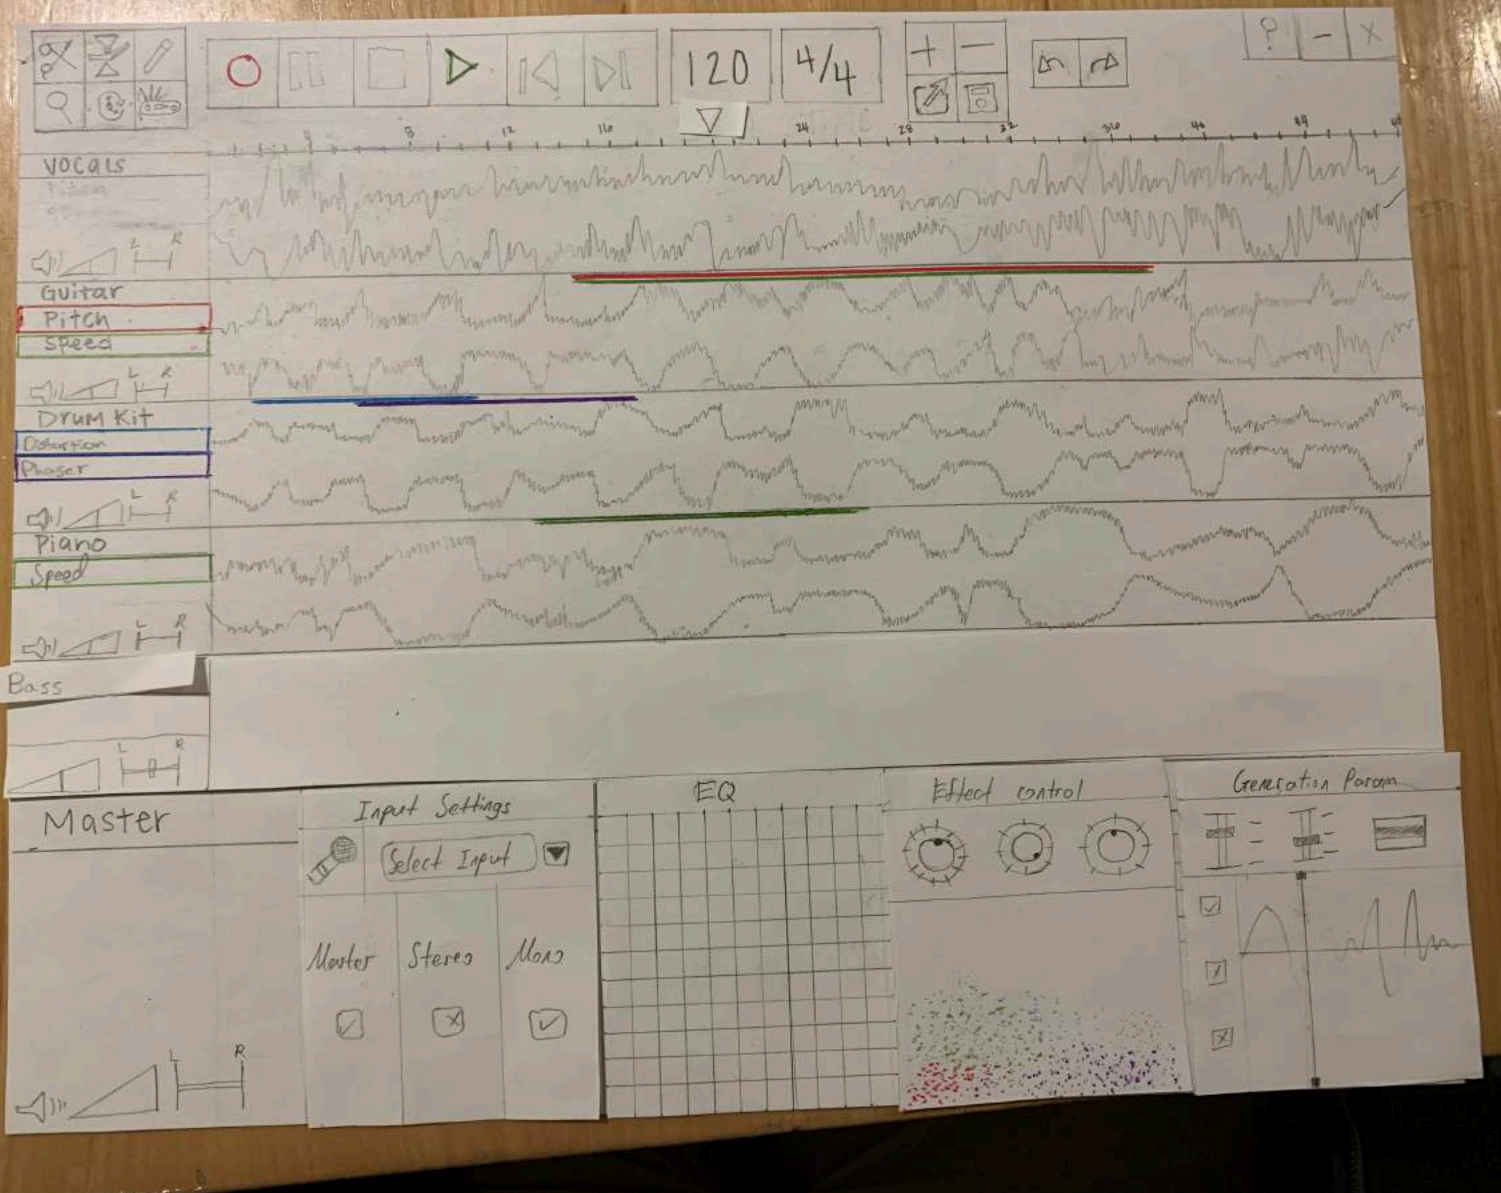 ?
-
X
120
4/4
+
-
4
8
12
16
24
28
32
36
40
44
48
Vocals
L R
Guitar
Pitch
Speed
L R
Drum Kit
Distortion
Phaser
L R
Piano
Speed
L R
Bass
L R
Master
L R
Input Settings
Select Input
Master Stereo Mono
EQ
Effect control
Generation Param